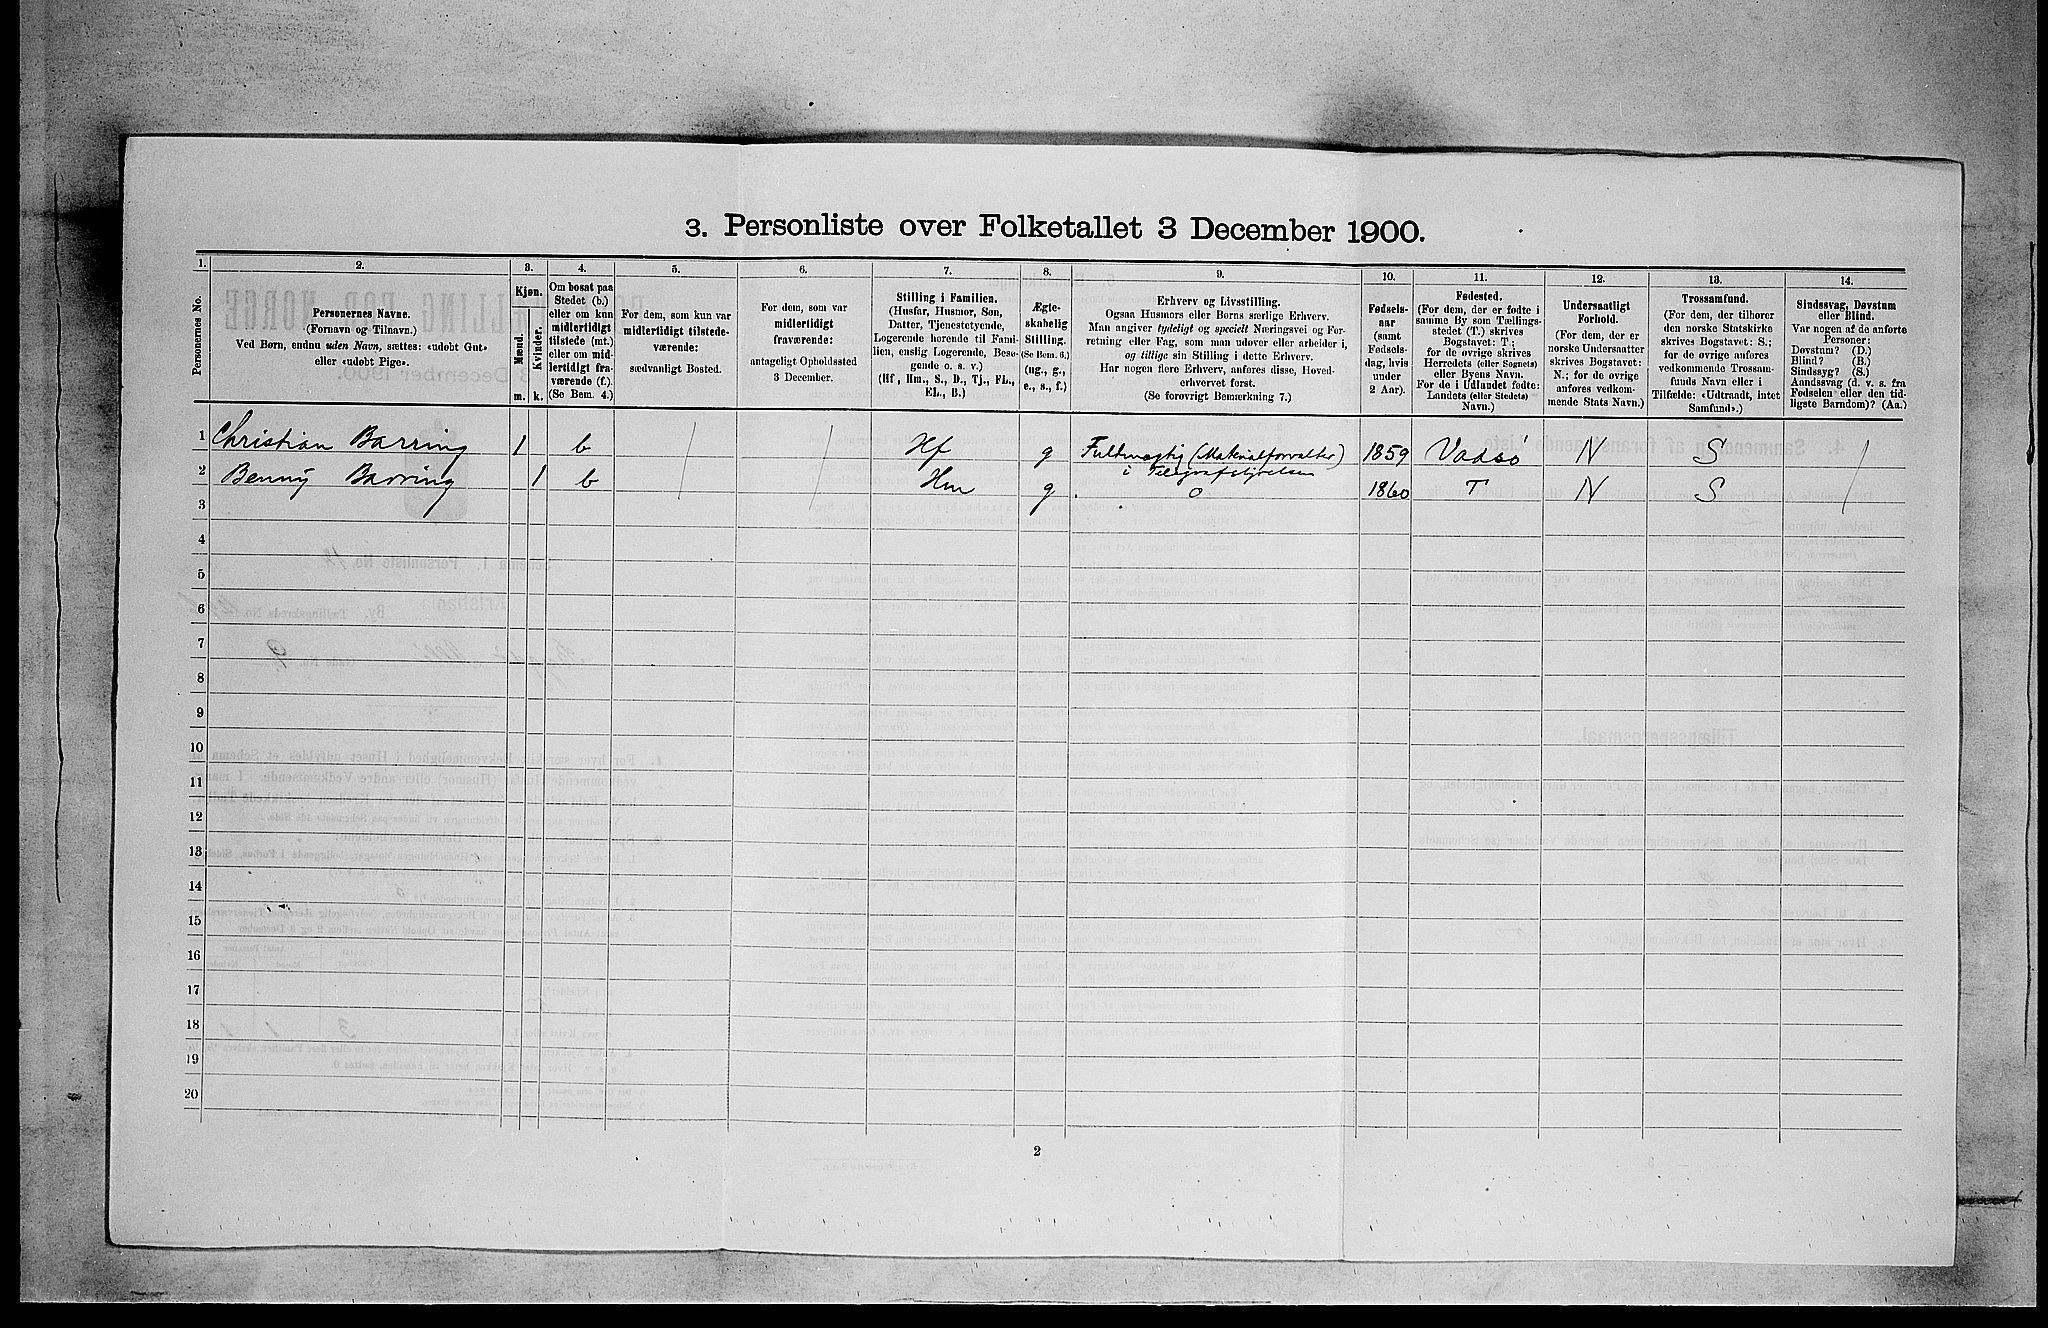 3. Personliste over Folketallet 3 December 1900.
1. 2. 3. 4. 5. 6. 7. 8. 9. 10. 11. 12. 13. 14.
Personernes No.
Personernes Navne.
(Fornavn og Tilnavn.)
Ved Børn, endnu uden Navn, sættes: «udøbt Gut»
eller «udøbt Pige».
Kjøn.
Mænd.
Kvinder.
m. k.
Om bosat paa
Stedet (b.)
eller om kun
midlertidigt
tilstede (mt.)
eller om mid-
lertidigt fra-
værende (f.)
(Se Bem. 4.)
For dem, som kun var
midlertidigt tilstede-
værende:
sædvanligt Bosted.
For dem, som var
midlertidigt
fraværende:
antageligt Opholdssted
3 December.
Stilling i Familien.
(Husfar, Husmor, Søn,
Datter, Tjenestetyende,
Logerende hørende til Fami-
lien, enslig Logerende, Besø-
gende o. s. v.)
(Hf, Hm., S., D., Tj., FL.,
EL., B.)
Ægte-
skabelig
Stilling.
(Se Bem. 6.)
(ug., g.,
e., s., f.)
Erhverv og Livsstilling.
Ogsaa Husmors eller Børns særlige Erhverv.
Man angiver tydeligt og specielt Næringsvei og For-
retning eller Fag, som man udøver eller arbeider i,
og tillige sin Stilling i dette Erhverv.
Har nogen flere Erhverv, anføres disse, Hoved-
erhvervet først.
(Se forøvrigt Bemærkning 7.)
Fødsels-
aar
(samt
Fødsels-
dag, hvis
under
2 Aar).
Fødested.
(For dem, der er fødte i
samme By som Tællings-
stedet (T.) skrives
Bogstavet: T;
for de øvrige skrives
Herredets (eller Sognets)
eller Byens Navn.
For de i Udlandet fødte:
Landets (eller Stedets)
Navn.)
Undersaatligt
Forhold.
(For dem, der er
norske Undersaatter
skrives Bogstavet:
N.; for de øvrige
anføres vedkom-
mende Stats Navn.)
Trossamfund.
(For dem, der tilhører
den norske Statskirke
skrives Bogstavet: S.;
for de øvrige anføres
vedkommende Trossam-
funds Navn eller i
Tilfælde: «Udtraadt, intet
Samfund».)
Sindssvag, Døvstum
eller Blind.
Var nogen af de anførte
Personer:
Døvstum? (D.)
Blind? (B.)
Sindssyg? (S.)
Aandssvag (d. v. s. fra
Fødselen eller den tid-
ligste Barndom)? (Aa.)
1 Christian Barring 1 b / / Hf g Fuldmægtig (Materialforvalter) 1859 Vadsø N S /
i Telegrafstyrelsen
2 Benny Barring 1 b / / Hm g 0 1860 T N S /
3
4
5
6
7
8
9
10
11
12
13
14
15
16
17
18
19
20
2